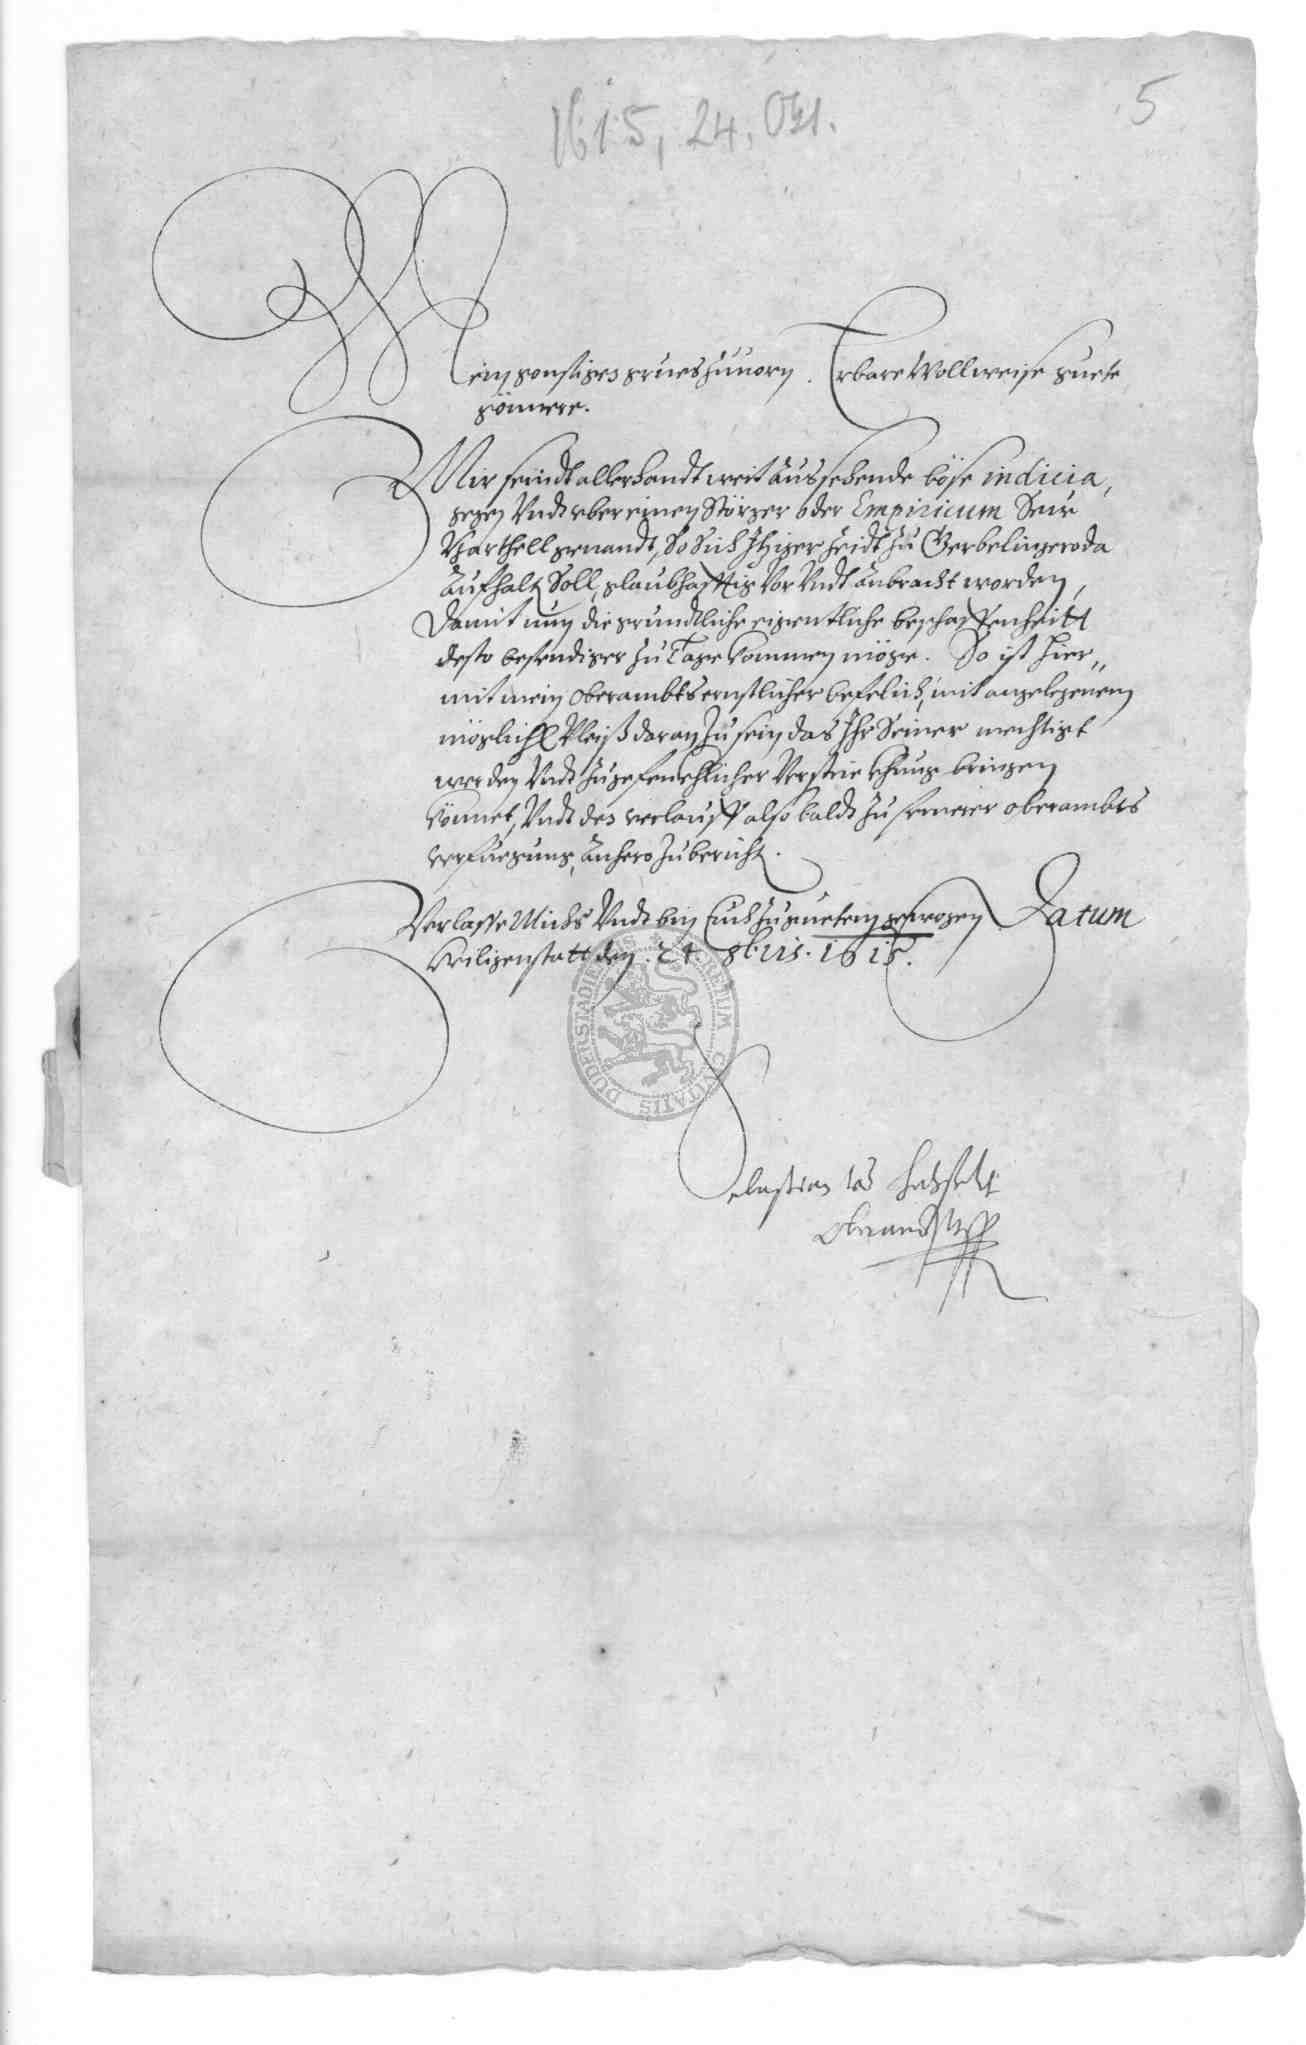 1615, 24. Okt.
5
Mein gonstiges grues zuuorn. Erbare Wollweise guete
gönnere.
Mir seindt allerhandt weit aussehende böse indicia,
gegen Vndt vber einen Störger oder Empiricum
Barthell genandt, So Sich Itziger Zeidt zu Gerbelingeroda
Aufhalt Soll, glaubhafftig Vor Vndt Anbracht worden,
Damit nun die grundtliche eigentliche beschaffenheitt
desto behendiger zu Tage kommen möge. So ist hier„
mit mein oberambts ernstlicher befelich, mit angelegenem
möglich Vleiß daran zu sein das Ihr Seiner mechtigt
werden Vndt zu gefencklicher Verstrickhung bringen
könnet, Vndt den verlauff alsobaldt zu fernerer oberambts
verfuegung, Anhero zubericht.
Verlasse Michs Vndt bin Euch zu guetem gewogen Datum
Heiligenstatt den .24. 8bris. 1615.
SIGILLUM CIVITATIS DUDERSTADIENSIS
Sebastian von Hatzfeldt
Oberambtman